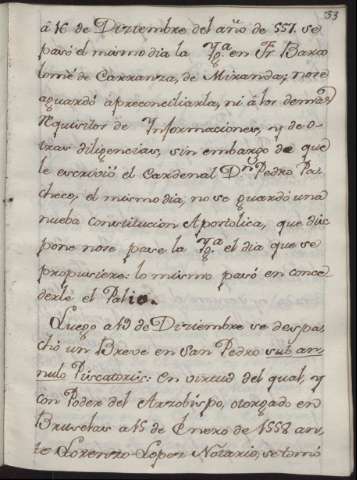 33
â 16 de Diziembre del año de 557. se
pasó el mismo dia la Yg.ª en Fr Barto
lomé de Carranza, de Miranda; no se
aguardó á preconiciarla, ni á los demas
requisitos de Informaciones, y de o-
tras diligencias, sin embargo de que
le escrivió el Cardenal D.n Pedro Pa
checo, el mismo dia, no se guardó una
nueba constitucion Apostolica, que dis
pone no se pase la Yg.ª el dia que se
propusiere: lo mismo pasó en conce
derle el Palio.
Luego á 19 de Diziembre se despa
chó un Breve en San Pedro sub an
nulo Piscatoris: en virtud del qual, y
con Poder del Arzobispo, otorgado en
Bruselas á 15 de Enero de 1558 an
te Lorenzo Lopez Notario, se tomó